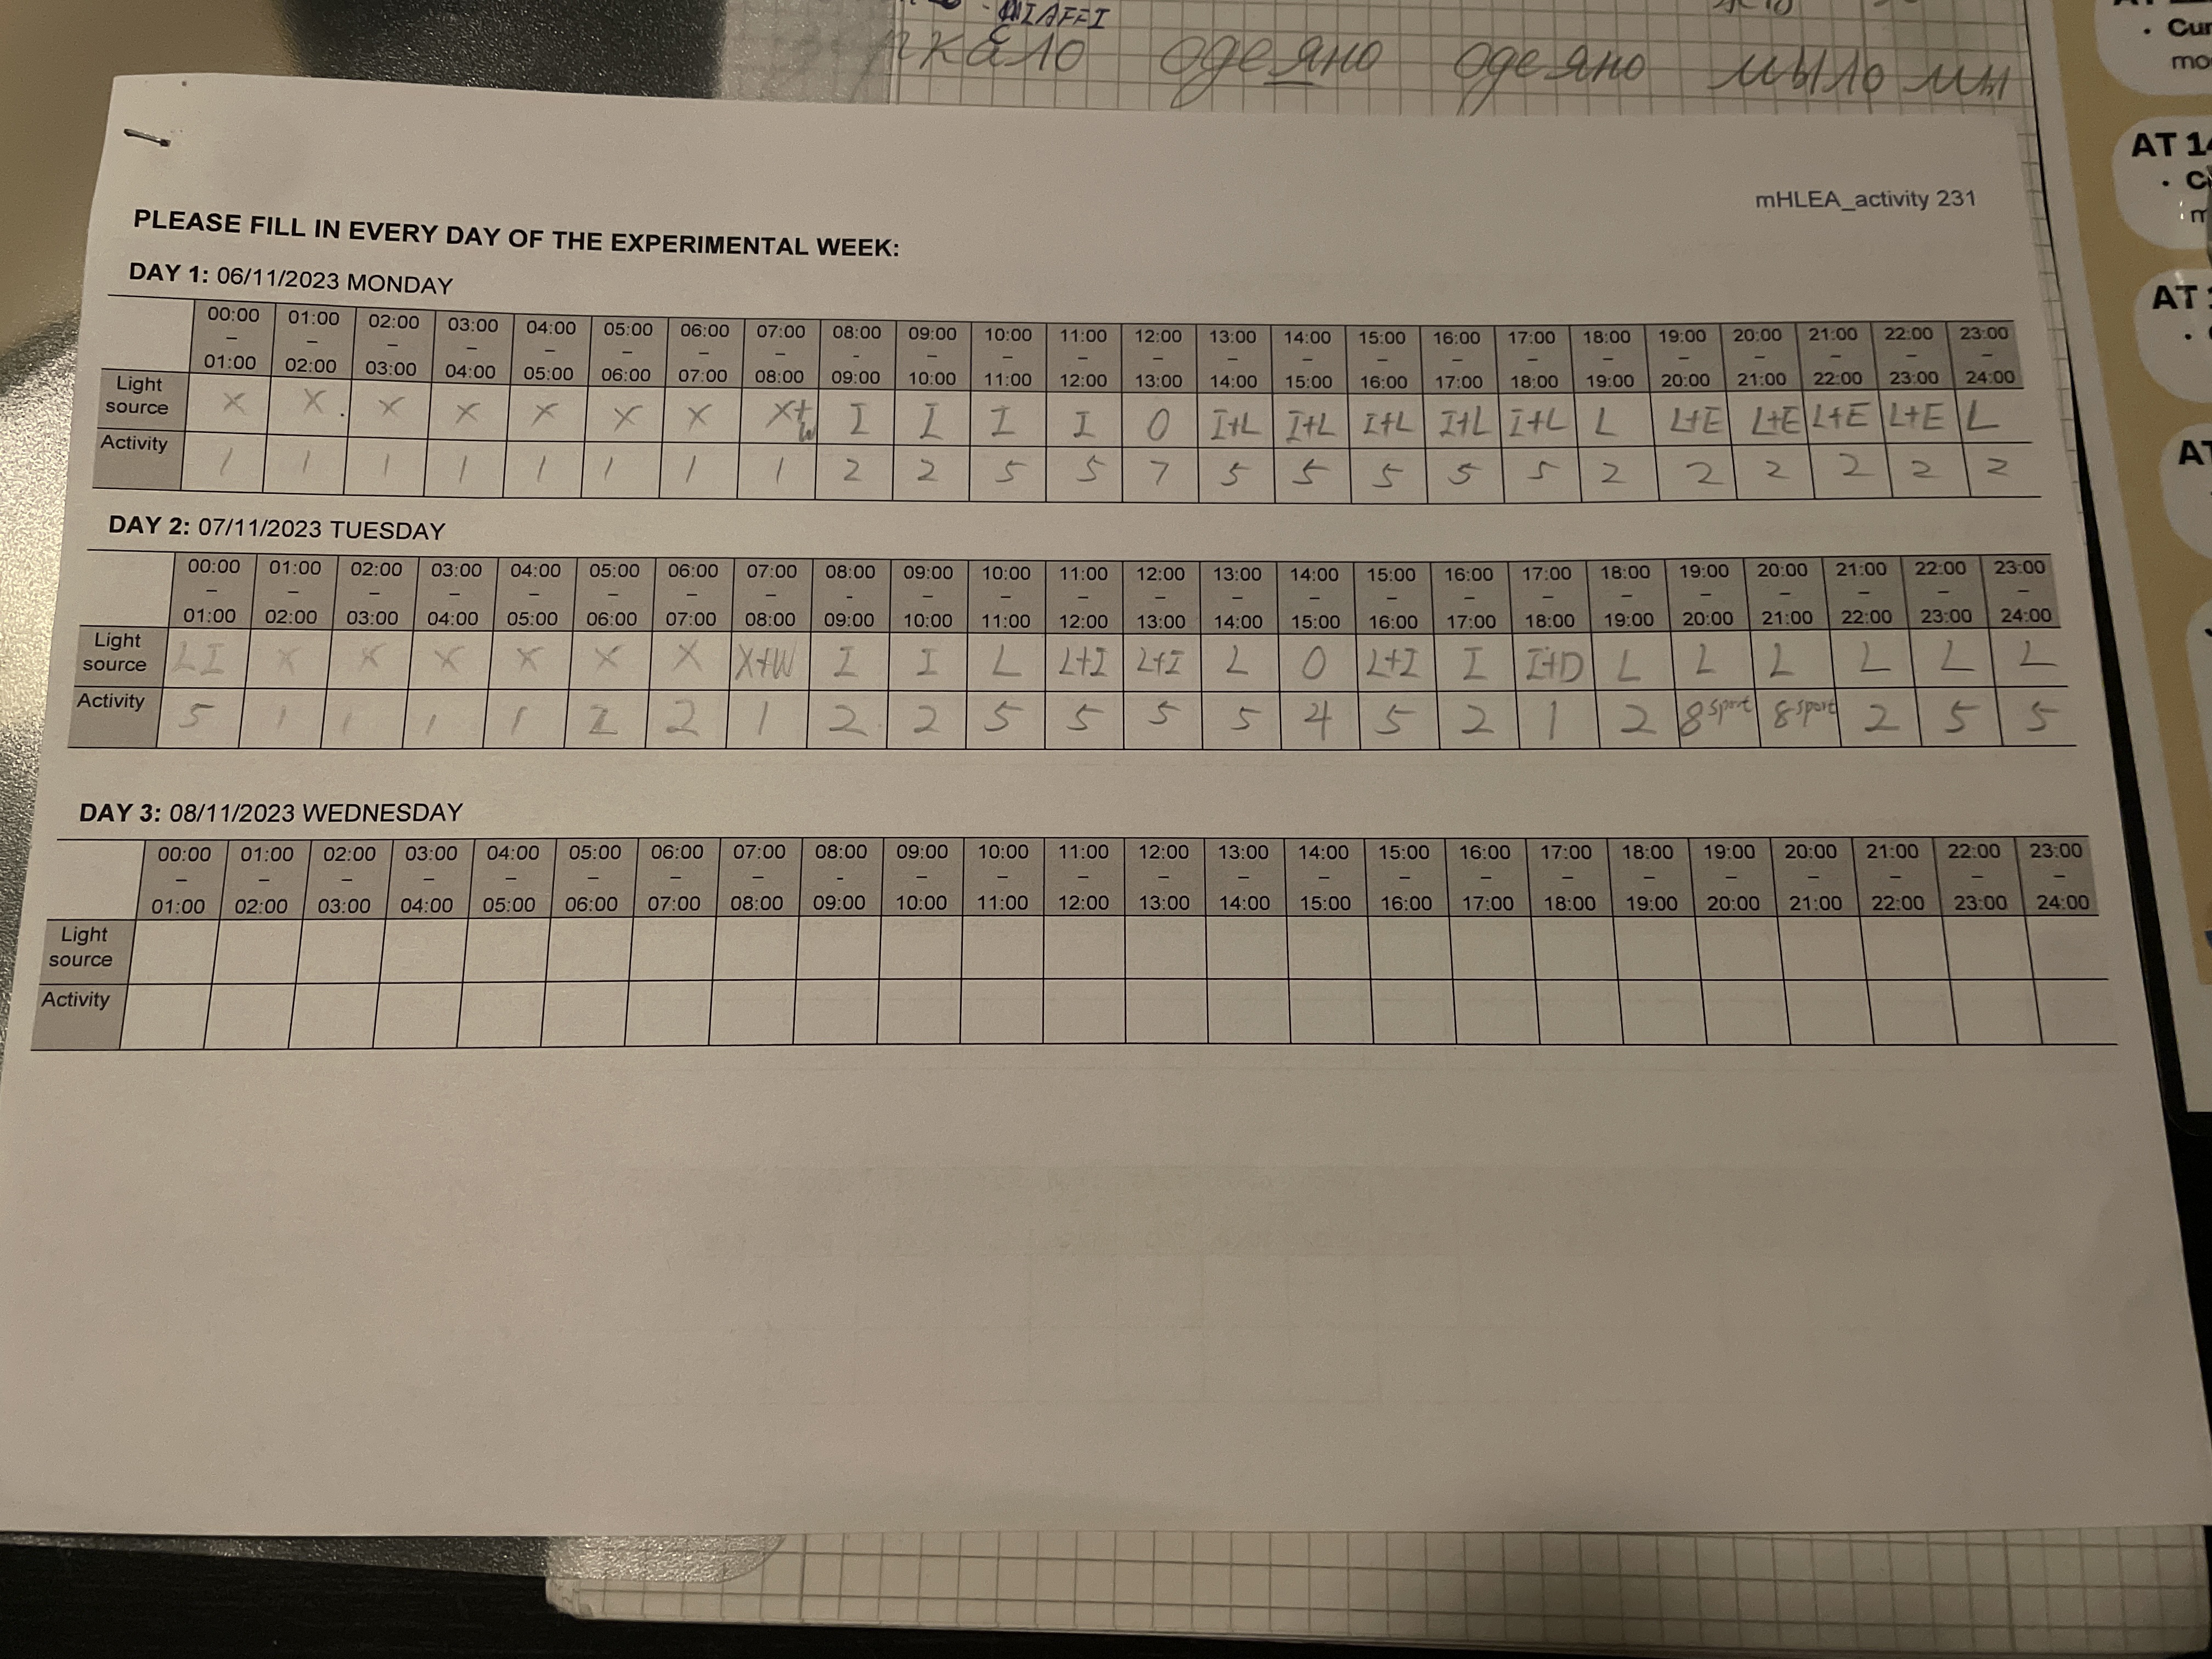 mHLEA_activity 231
PLEASE FILL IN EVERY DAY OF THE EXPERIMENTAL WEEK:
DAY 1: 06/11/2023 MONDAY
00:00 – 01:00 01:00 – 02:00 02:00 – 03:00 03:00 – 04:00 04:00 – 05:00 05:00 – 06:00 06:00 – 07:00 07:00 – 08:00 08:00 - 09:00 09:00 – 10:00 10:00 – 11:00 11:00 – 12:00 12:00 – 13:00 13:00 – 14:00 14:00 – 15:00 15:00 – 16:00 16:00 – 17:00 17:00 – 18:00 18:00 – 19:00 19:00 – 20:00 20:00 – 21:00 21:00 – 22:00 22:00 – 23:00 23:00 – 24:00
Light source X X. X X X X X X+W I I I I O I+L I+L I+L I+L I+L L L+E L+E L+E L+E L
Activity 1 1 1 1 1 1 1 1 2 2 5 5 7 5 5 5 5 5 2 2 2 2 2 2
DAY 2: 07/11/2023 TUESDAY
00:00 – 01:00 01:00 – 02:00 02:00 – 03:00 03:00 – 04:00 04:00 – 05:00 05:00 – 06:00 06:00 – 07:00 07:00 – 08:00 08:00 - 09:00 09:00 – 10:00 10:00 – 11:00 11:00 – 12:00 12:00 – 13:00 13:00 – 14:00 14:00 – 15:00 15:00 – 16:00 16:00 – 17:00 17:00 – 18:00 18:00 – 19:00 19:00 – 20:00 20:00 – 21:00 21:00 – 22:00 22:00 – 23:00 23:00 – 24:00
Light source LI X X X X X X X+W I I L L+I L+I L O L+I I I+D L L L L L L
Activity 5 1 1 1 1 2 2 1 2 2 5 5 5 5 4 5 2 1 2 8 sport 8 sport 2 5 5
DAY 3: 08/11/2023 WEDNESDAY
00:00 – 01:00 01:00 – 02:00 02:00 – 03:00 03:00 – 04:00 04:00 – 05:00 05:00 – 06:00 06:00 – 07:00 07:00 – 08:00 08:00 - 09:00 09:00 – 10:00 10:00 – 11:00 11:00 – 12:00 12:00 – 13:00 13:00 – 14:00 14:00 – 15:00 15:00 – 16:00 16:00 – 17:00 17:00 – 18:00 18:00 – 19:00 19:00 – 20:00 20:00 – 21:00 21:00 – 22:00 22:00 – 23:00 23:00 – 24:00
Light source
Activity